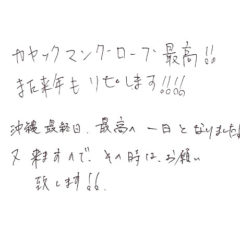 カヤックマングローブ最高!!
また来年もリピします!!!!
沖縄最終日、最高の一日となりました!
又来ますので、その時は、お願い
致します!!